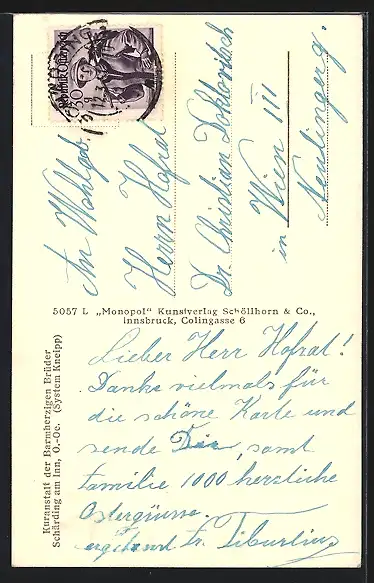 Republik Österreich
30
An Wohlgeb.
Herrn Hofrat
Dr. Christian
in Wien III
Neulinggerg.
5057 L „Monopol" Kunstverlag Schöllhorn & Co.,
Innsbruck, Colingasse 6
Kuranstalt der Barmherzigen Brüder
Schärding am Inn, O.-Oe. (System Kneipp)
Lieber Herr Hofrat!
Danke vielmals für
die schöne Karte und
sende Dir, samt
Familie 1000 herzliche
Ostergrüsse.
ergebenst fr. Tiburtius